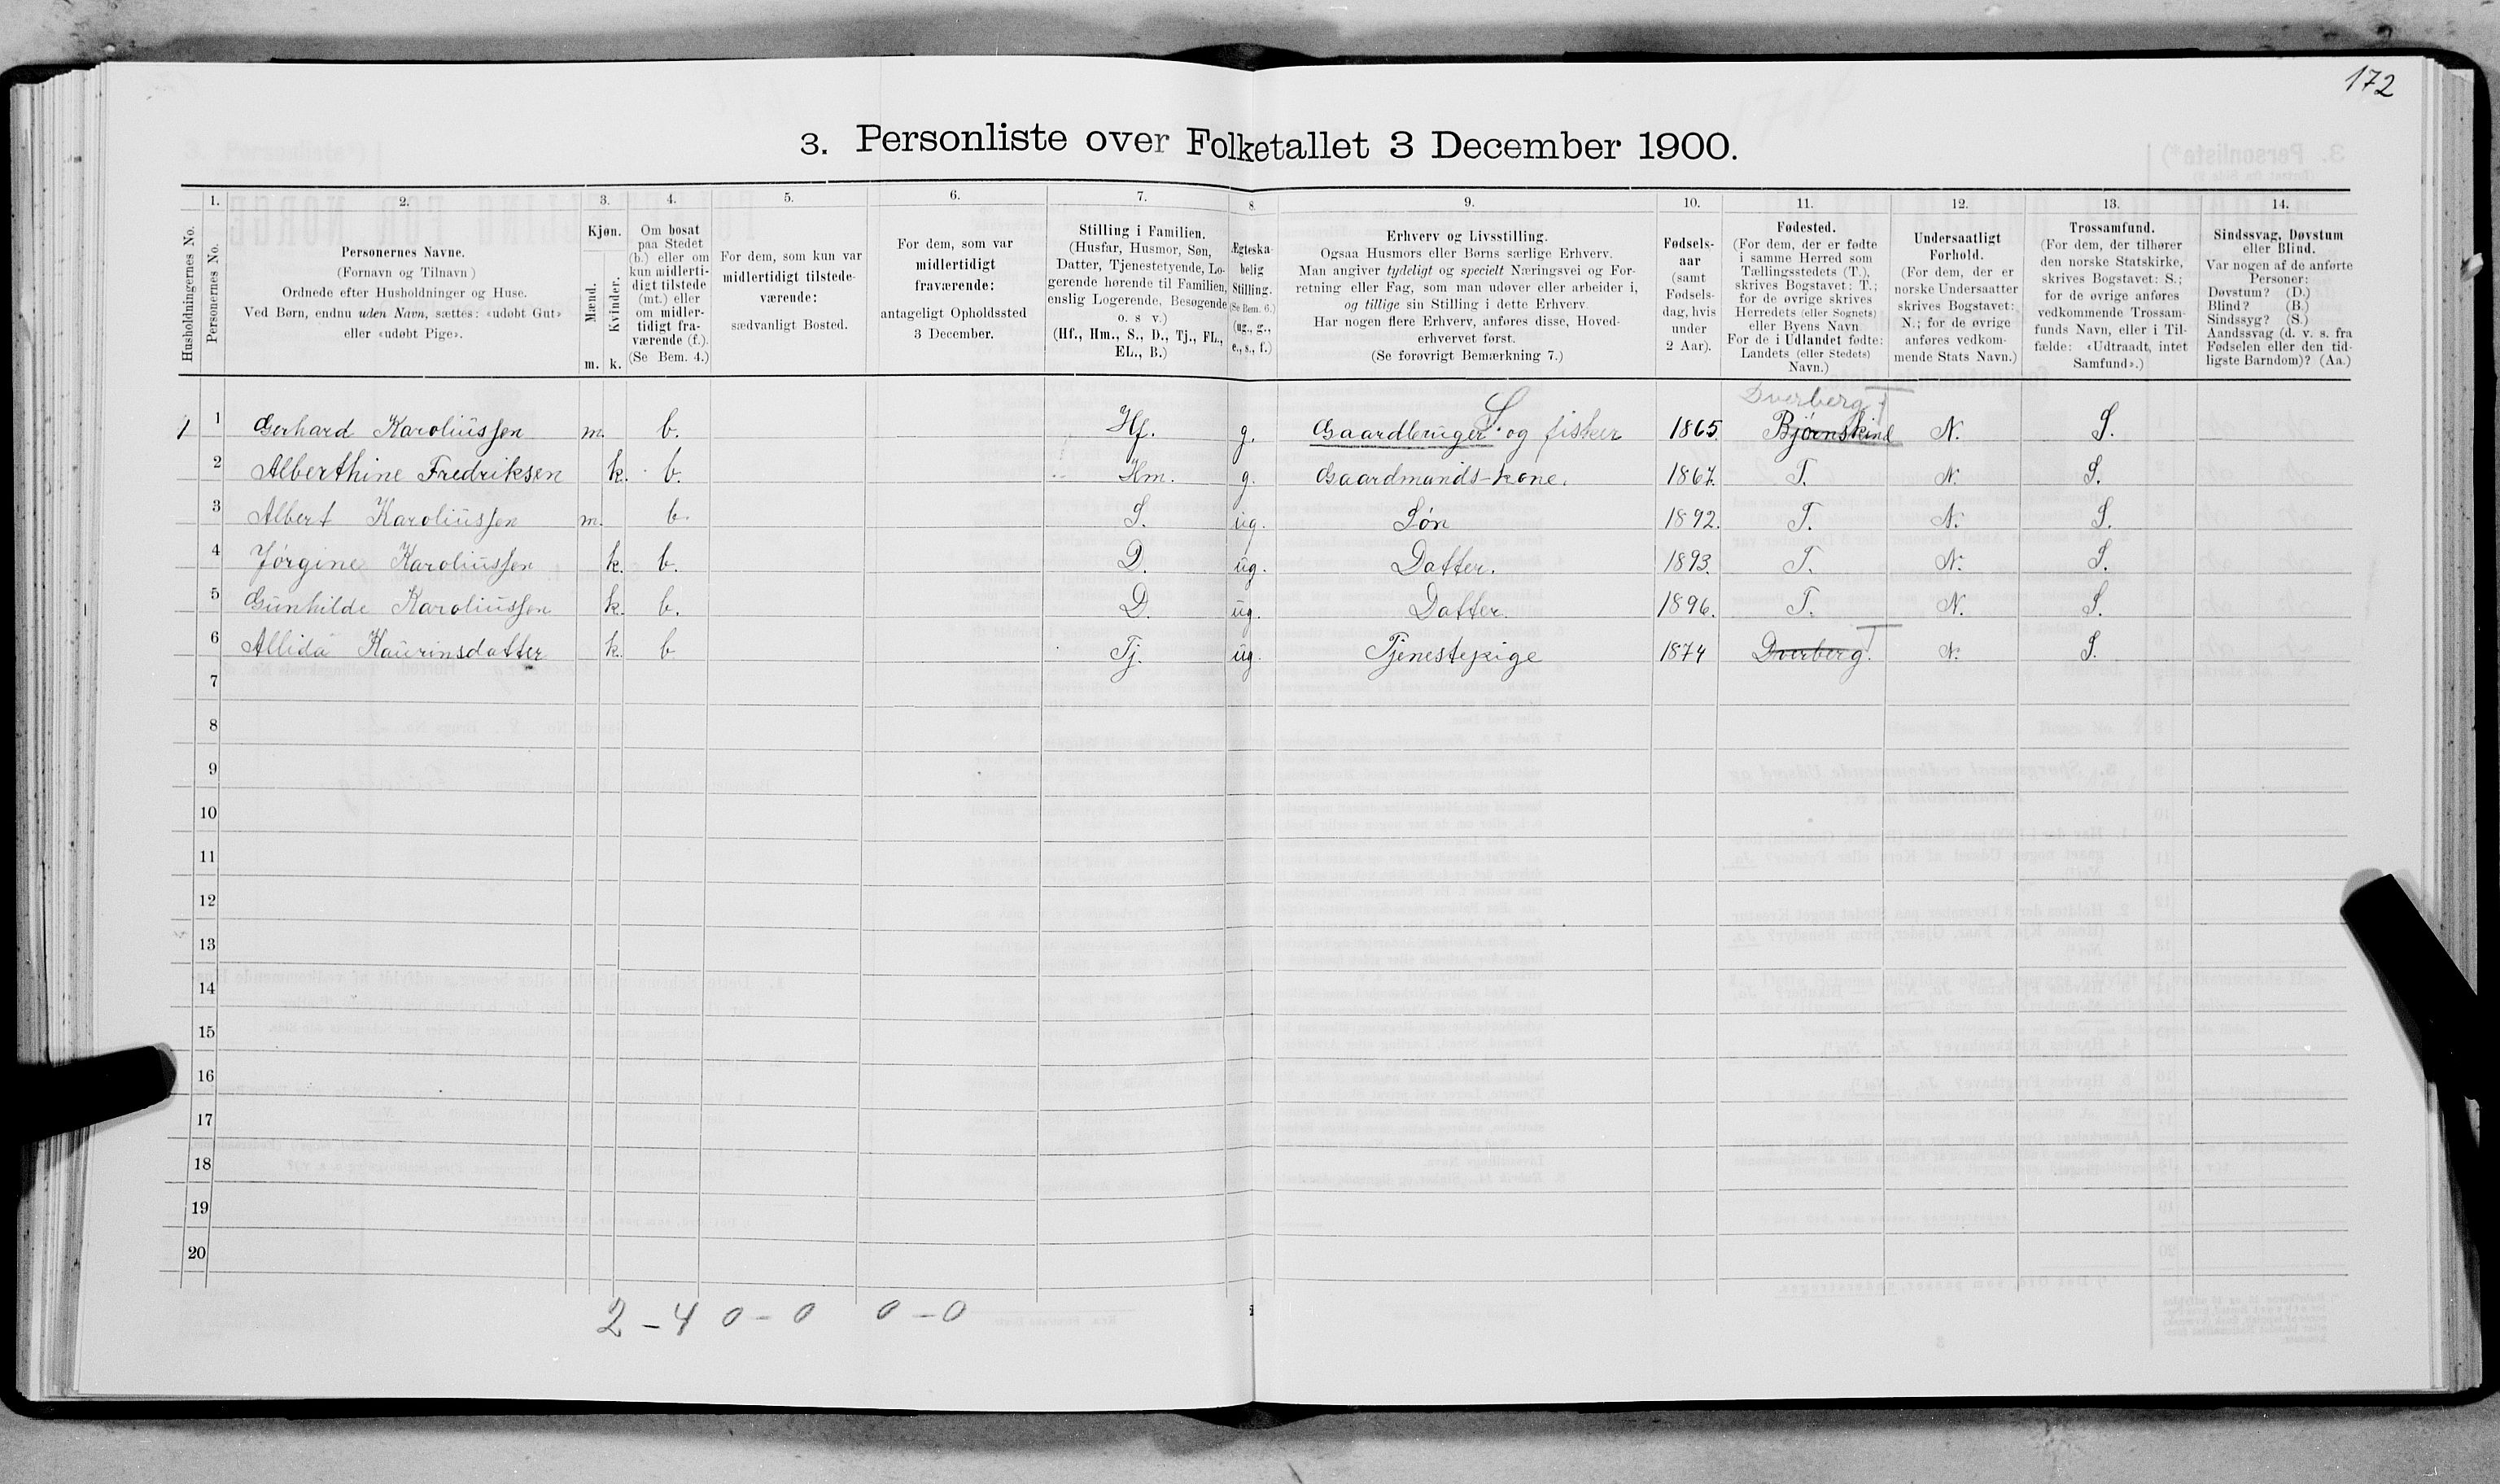 172
3. Personliste over Folketallet 3 December 1900.
1. 2. 3. 4. 5. 6. 7. 8. 9. 10. 11. 12. 13. 14.
Husholdningernes No.
Personernes No.
Personernes Navne.
(Fornavn og Tilnavn)
Ordnede efter Husholdninger og Huse.
Ved Børn, endnu uden Navn, sættes: «udøbt Gut»
eller «udøbt Pige».
Kjøn.
Mænd.
Kvinder.
m. k.
Om bosat
paa Stedet
(b.) eller om
kun midlerti-
digt tilstede
(mt.) eller
om midler-
tidigt fra-
værende (f.).
(Se Bem. 4.)
For dem, som kun var
midlertidigt tilstede-
værende:
sædvanligt Bosted.
For dem, som var
midlertidigt
fraværende:
antageligt Opholdssted
3 December.
Stilling i Familien.
(Husfar, Husmor, Søn,
Datter, Tjenestetyende, Lo-
gerende hørende til Familien,
enslig Logerende, Besøgende
o. s v.)
(Hf., Hm., S., D., Tj., FL.,
EL., B.)
Ægteska-
belig
Stilling.
(Se Bem. 6.)
(ug., g.,
e., s., f.)
Erhverv og Livsstilling.
Ogsaa Husmors eller Børns særlige Erhverv.
Man angiver tydeligt og specielt Næringsvei og For-
retning eller Fag, som man udøver eller arbeider i,
og tillige sin Stilling i dette Erhverv.
Har nogen flere Erhverv, anføres disse, Hoved-
erhvervet først.
(Se forøvrigt Bemærkning 7.)
Fødsels-
aar
(samt
Fødsels-
dag, hvis
under
2 Aar).
Fødested.
(For dem, der er fødte
i samme Herred som
Tællingsstedets (T.),
skrives Bogstavet: T.;
for de øvrige skrives
Herredets (eller Sognets)
eller Byens Navn.
For de i Udlandet fødte:
Landets (eller Stedets)
Navn.)
Undersaatligt
Forhold.
(For dem, der er
norske Undersaatter
skrives Bogstavet:
N.; for de øvrige
anføres vedkom-
mende Stats Navn.)
Trossamfund.
(For dem, der tilhører
den norske Statskirke,
skrives Bogstavet: S.;
for de øvrige anføres
vedkommende Trossam-
funds Navn, eller i Til-
fælde: «Udtraadt, intet
Samfund».)
Sindssvag, Døvstum
eller Blind.
Var nogen af de anførte
Personer:
Døvstum? (D.)
Blind? (B.)
Sindssyg? (S.)
Aandssvag (d. v. s. fra
Fødselen eller den tid-
ligste Barndom)? (Aa.)
Dverberg T
1 1 Gerhard Karoliussen m. b. Hf. g. Gaardbruger S. og fisker 1865 Bjørnskind N. S.
2 Alberthine Fredriksen k. b. Hm. g. Gaardmands-kone. 1867. T. N. S.
3 Albert Karoliussen m. b. S. ug. Søn 1892. T. N. S.
4 Jørgine Karoliussen k. b. D. ug. Datter. 1893. T. N. S.
5 Gunhilde Karoliussen k. b. D. ug. Datter. 1896. T. N. S.
6 Allida Kaurinsdatter k. b Tj. ug. Tjenestepige 1874 Dverberg. T N. S.
7
8
9
10
11
12
13
14
15
16
17
18
19
20
2 - 4 0 - 0 0 - 0